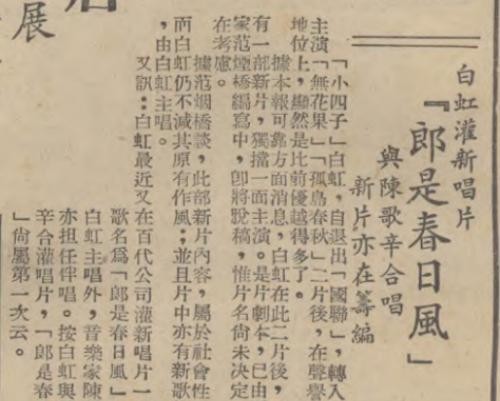 白虹灌新唱片
『郎是春日風』
與陳歌辛合唱
新片亦在籌編
「小四子」白虹,自退出「國聯」,轉入
主演「無花果」「孤島春秋」二片後,在聲譽
地位上,顯然是比前優越得多了。
據本報可靠方面消息,白虹在此二片後,
有一部新片,獨擋一面主演。是片劇本,已由
家范煙橋編寫中,即將脫稿,惟片名尚未決定
在考慮。
據范烟橋談,此部新片內容,屬於社會性
而白虹仍不減其原有作風;並且片中亦有新歌
,由白虹主唱。
又訊:白虹最近又在百代公司灌新唱片一
歌名爲「郎是春日風」
白虹主唱外,音樂家陳
亦担任伴唱。按白虹與
辛合灌唱片,「郎是春
」尚屬第一次云。
展